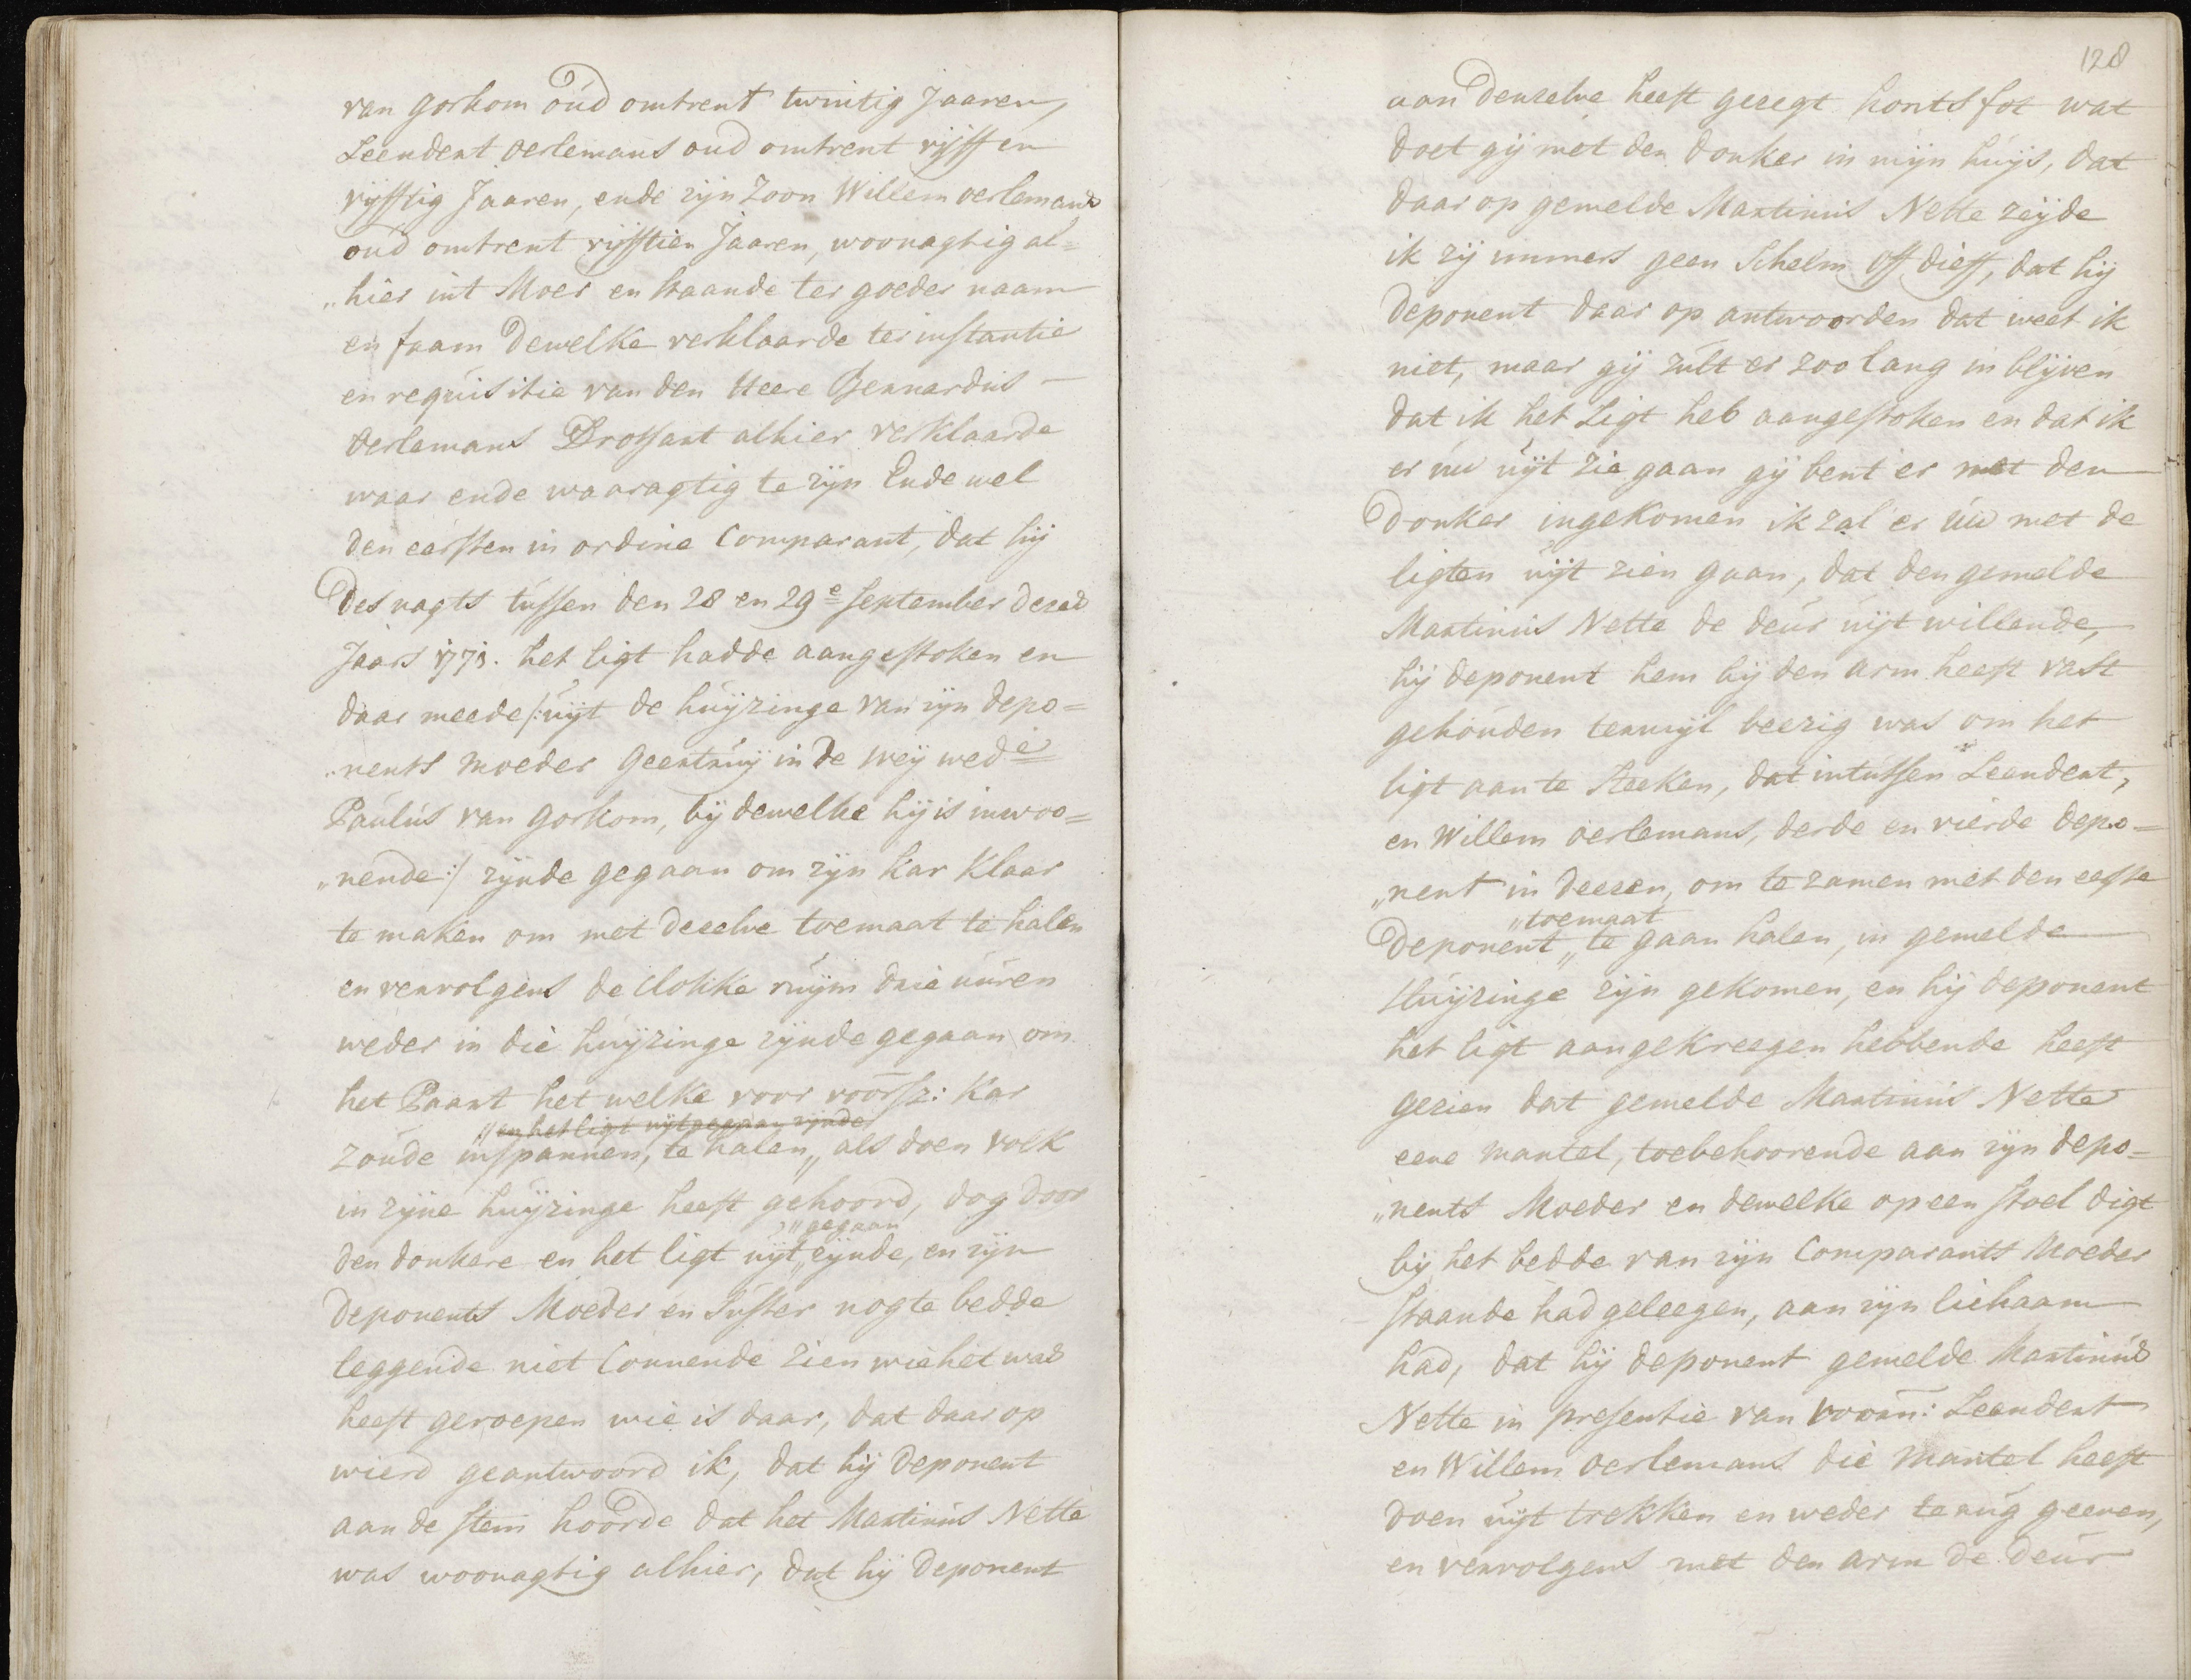 van Gorkom oud omtrent twintig Jaaren,
Leendert Oerlemans oud omtrent vijff en
vijfftig Jaaren, ende zijn Zoon Willem oerlemans
oud omtrent vijfftien Jaaren, woonagtig al=
„hier int Moer en staande ter goeder naam
en faam Dewelke verklaarde ter instantie
en requisitie van den Heere Bernardus –
Oerlemans Drossart alhier verklaarde
waar ende waaragtig te zijn Ende wel
den eersten in ordine Comparant, dat hij
Des nagts tussen den 28 en 29e September dezes
Jaars 1773. het ligt hadde aangestoken en
daar meede /: uijt de huijzinge van zijn depo=
„nents moeder Geertruij in de weij wede
Paulus van Gorkom, bij dewelke hij is inwoo=
„nende :/ zijnde gegaan om zijn kar klaar
te maken om met deselve toemaat te halen
en vervolgens de Clokke ruijm drie uuren
weder in die huijzinge zijnde gegaan om
het Paart het welke voor voorsz: kar
„en het ligt uijtgegaan zijnde
zoude inspannen, te halen „ als doen volk
in zijne huijzinge heeft gehoord, dog door
„gegaan
den donkere en het ligt uijt „ zijnde, en zijn
deponents Moeder en Suster nog te bedde
leggende niet Connende zien wie het was
heeft geroepen wie is daar, dat daar op
wierd geantwoord ik, dat hij Deponent
aan de stem hoorde dat het Martinus Nette
was woonagtig alhier, dat hij Deponent
128
aan Denzelve heeft gezegt hontsfot wat
doet gij met den donker in mijn huijs, dat
daar op gemelde Martinus Nette zeijde
ik zij immers geen Schelm off dieff, dat hij
Deponent daar op antwoorden dat weet ik
niet, maar gij zult er zoo lang in blijven
dat ik het Ligt heb aangestoken en dat ik
er uw uijt zie gaan gij bent er met den
Donker ingekomen ik zal er uw met de
ligten uijt zien gaan, dat den gemelde
Martinus Nette de deur uijt willende,
hij deponent hem bij den arm heeft vast
gehouden terwijl beezig was om het
ligt aan te steeken, dat intussen Leendert,
en Willem oerlemans, derde en vierde depo=
„nent in deezen, om te zamen met den eerste
„toemaat
Deponent „ te gaan halen, in gemelde
Huijzinge zijn gekomen, en hij deponent
het ligt aangekreegen hebbende heeft
gezien dat gemelde Martinus Nette
eene mantel, toebehoorende aan zijn depo=
„nents Moeder en dewelke op een stoel digt
bij het bedde van zijn Comparants Moeder
staande had geleegen, aan zijn lichaam
had, dat hij deponent gemelde Martinus
Nette in presentie van voorn: Leendert
en Willem Oerlemans die mantel heeft
doen uijt trekken en weder terug geeven,
en vervolgens met den arm de deur